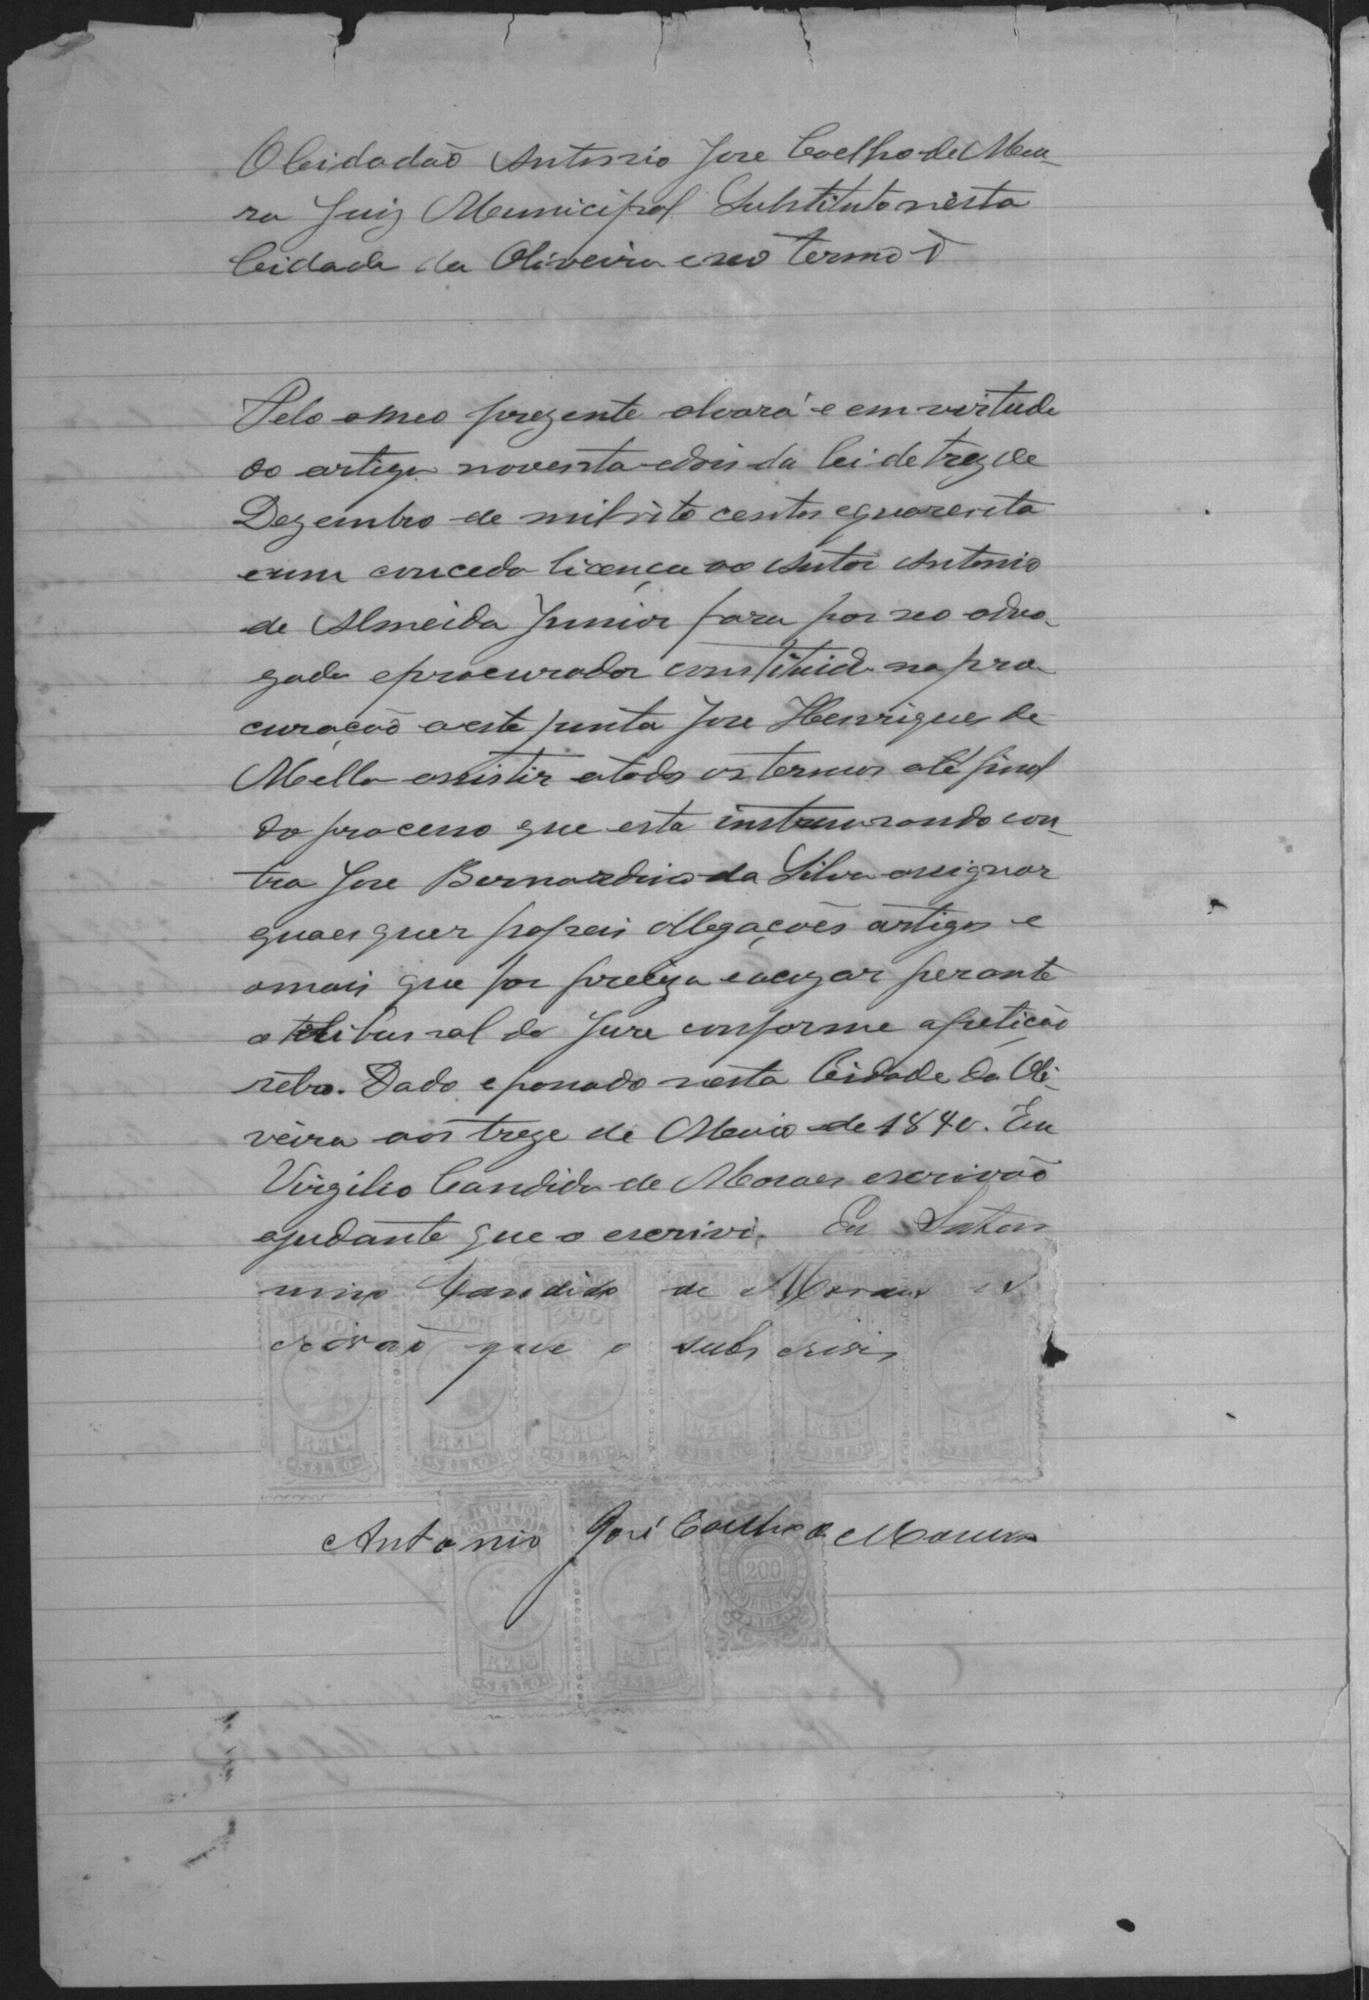 O Cidadão Antonio Jose Coelho de Mou-
ra Juiz Municipal Substituto nésta
Cidade da Oliveira e seo termo &
Pelo o meo prezente alvará e em virtude
do artigo noventa e dois da lei de trez de
Dezembro de mil oito centos e quarenta
e um concedo licença ao Autor Antonio
de Almeida Junior para por seo advo-
gado e procurador constituido na pro
curação a este junta Jose Henriques de
Mello assistir a todos os termos até final
do processo que esta instaurando con-
tra Jose Bernardino da Silva assignar
quaes quer papeis allegações artigos e
o mais que for preciza e acuzar perante
o tribunal do Jure conforme a petição
retro. Dado e passado nesta Cidade da Oli-
veira aos treze de Maio de 1890. Eu
Virgilio Candido de Moraes escrivão
ajudante que o escrivi. Eu Satur
nino Candido de Moraes es
crivão que o subscrivi
REIS
SELLO
REIS
SELLO
REIS
SELLO
REIS
SELLO
REIS
SELLO
REIS
SELLO
Antonio José Coelho de Moura
IMPERIO
200
REIS
REIS
SELLO
REIS
SELLO